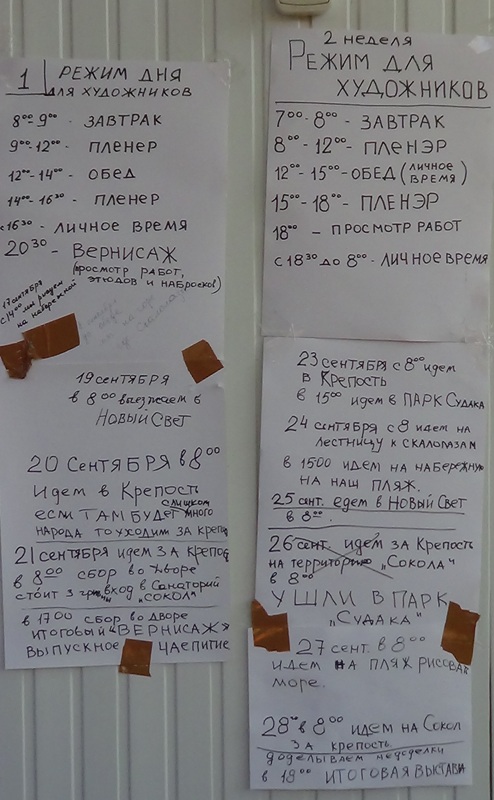 1 РЕЖИМ ДНЯ
ДЛЯ ХУДОЖНИКОВ
8⁰⁰ 9⁰⁰ - ЗАВТРАК
9⁰⁰-12⁰⁰ - ПЛЕНЕР
12⁰⁰-14⁰⁰ - ОБЕД
14⁰⁰-16³⁰ - ПЛЕНЕР
с 16³⁰ - ЛИЧНОЕ ВРЕМЯ
20³⁰ - ВЕРНИСАЖ
(просмотр работ,
этюдов и набросков)
17 сентября
с 14⁰⁰ мы рисуем
на набережной
19 сентября
в 8⁰⁰ выезжаем в
Новый Свет
20 Сентября в 8⁰⁰
идем в Крепость
слишком
если ТАМ будет много
народа то уходим за крепо
21 сентября идем за крепо
в 8⁰⁰ сбор во дворе
стоит 3 грн вход в Санаторий
"СОКОЛ"
в 17⁰⁰ сбор во дворе
итоговый "ВЕРНИСАЖ"
выпускное чаепитие
2 неделя
Режим для
художников
7⁰⁰-8⁰⁰ - ЗАВТРАК
8⁰⁰-12⁰⁰ - ПЛЕНЭР
12⁰⁰-15⁰⁰-ОБЕД (личное
время)
15⁰⁰-18⁰⁰ - ПЛЕНЭР
18⁰⁰ - ПРОСМОТР РАБОТ
с 18³⁰ до 8⁰⁰ - ЛИЧНОЕ ВРЕМЯ
23 сентября с 8⁰⁰ идем
в Крепость
в 15⁰⁰ идем в ПАРК Судака
24 сентября с 8 идем на
лестницу к скалолазам
в 15⁰⁰ идем на набережную
на наш пляж.
25 сент. едем в Новый Свет
в 8⁰⁰.
26 сент. идем за Крепость
на территорию „Сокола"
в 8⁰⁰
УШЛИ В ПАРК
„Судака"
27 сент. в 8⁰⁰
идем на пляж рисовать
море.
28⁰⁰ в 8⁰⁰ идем на Сокол
за крепость
доделываем недоделки
в 18⁰⁰ ИТОГОВАЯ ВЫСТАВКА